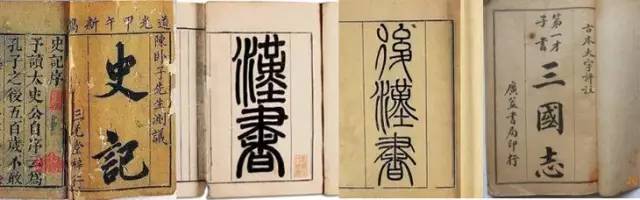 道光甲午新鐫
陳卧子先生測議
史記
史記序
予讀太史公自序云爲
孔子之後五百歲不敢
漢書
後漢書
古本大字評註
第一才
子書
三國志
廣益書局印行